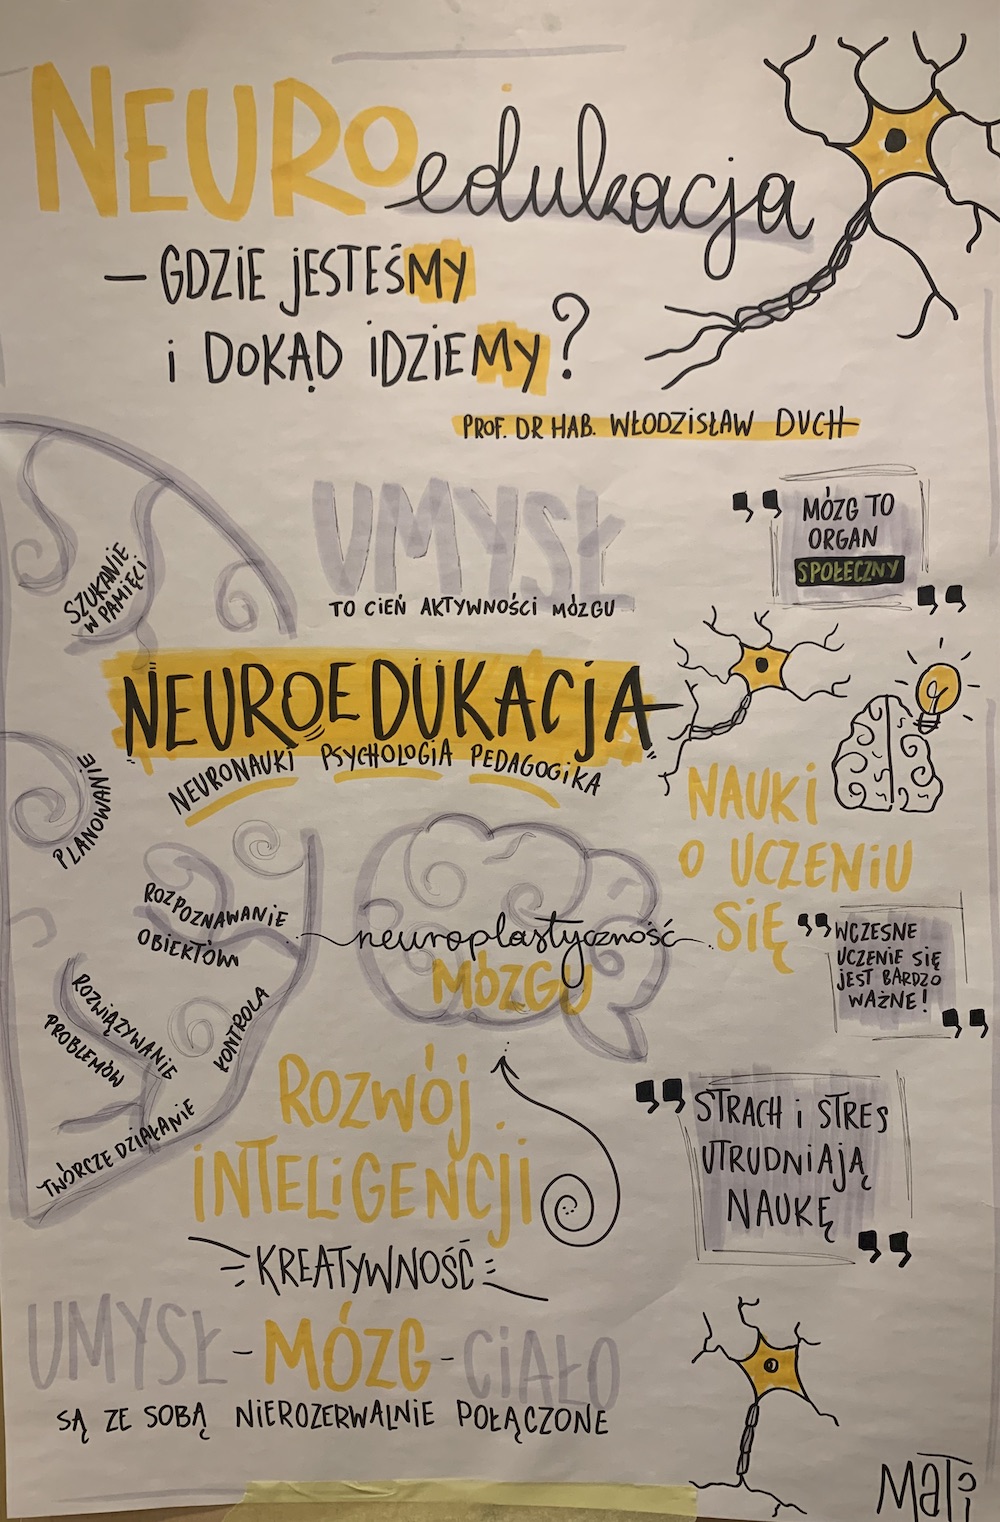 NEUROedukacja
– GDZIE JESTEŚMY
i DOKĄD IDZIEMY?
PROF. DR HAB. WŁODZISŁAW DUCH
UMYSŁ
TO CIEŃ AKTYWNOŚCI MÓZGU
MÓZG TO
ORGAN
SPOŁECZNY
SZUKANIE
W PAMIĘCI
NEUROEDUKACJA
NEURONAUKI PSYCHOLOGIA PEDAGOGIKA
PLANOWANIE
NAUKI
O UCZENIU
SIĘ
ROZPOZNAWANIE
OBIEKTÓW
neuroplastyczność
MÓZGU
WCZESNE
UCZENIE SIĘ
JEST BARDZO
WAŻNE!
ROZWIĄZYWANIE
PROBLEMÓW
KONTROLA
TWÓRCZE DZIAŁANIE
ROZWÓJ
INTELIGENCJI
KREATYWNOŚĆ
STRACH i STRES
UTRUDNIAJĄ
NAUKĘ
UMYSŁ-MÓZG-CIAŁO
SĄ ZE SOBĄ NIEROZERWALNIE POŁĄCZONE
MATi